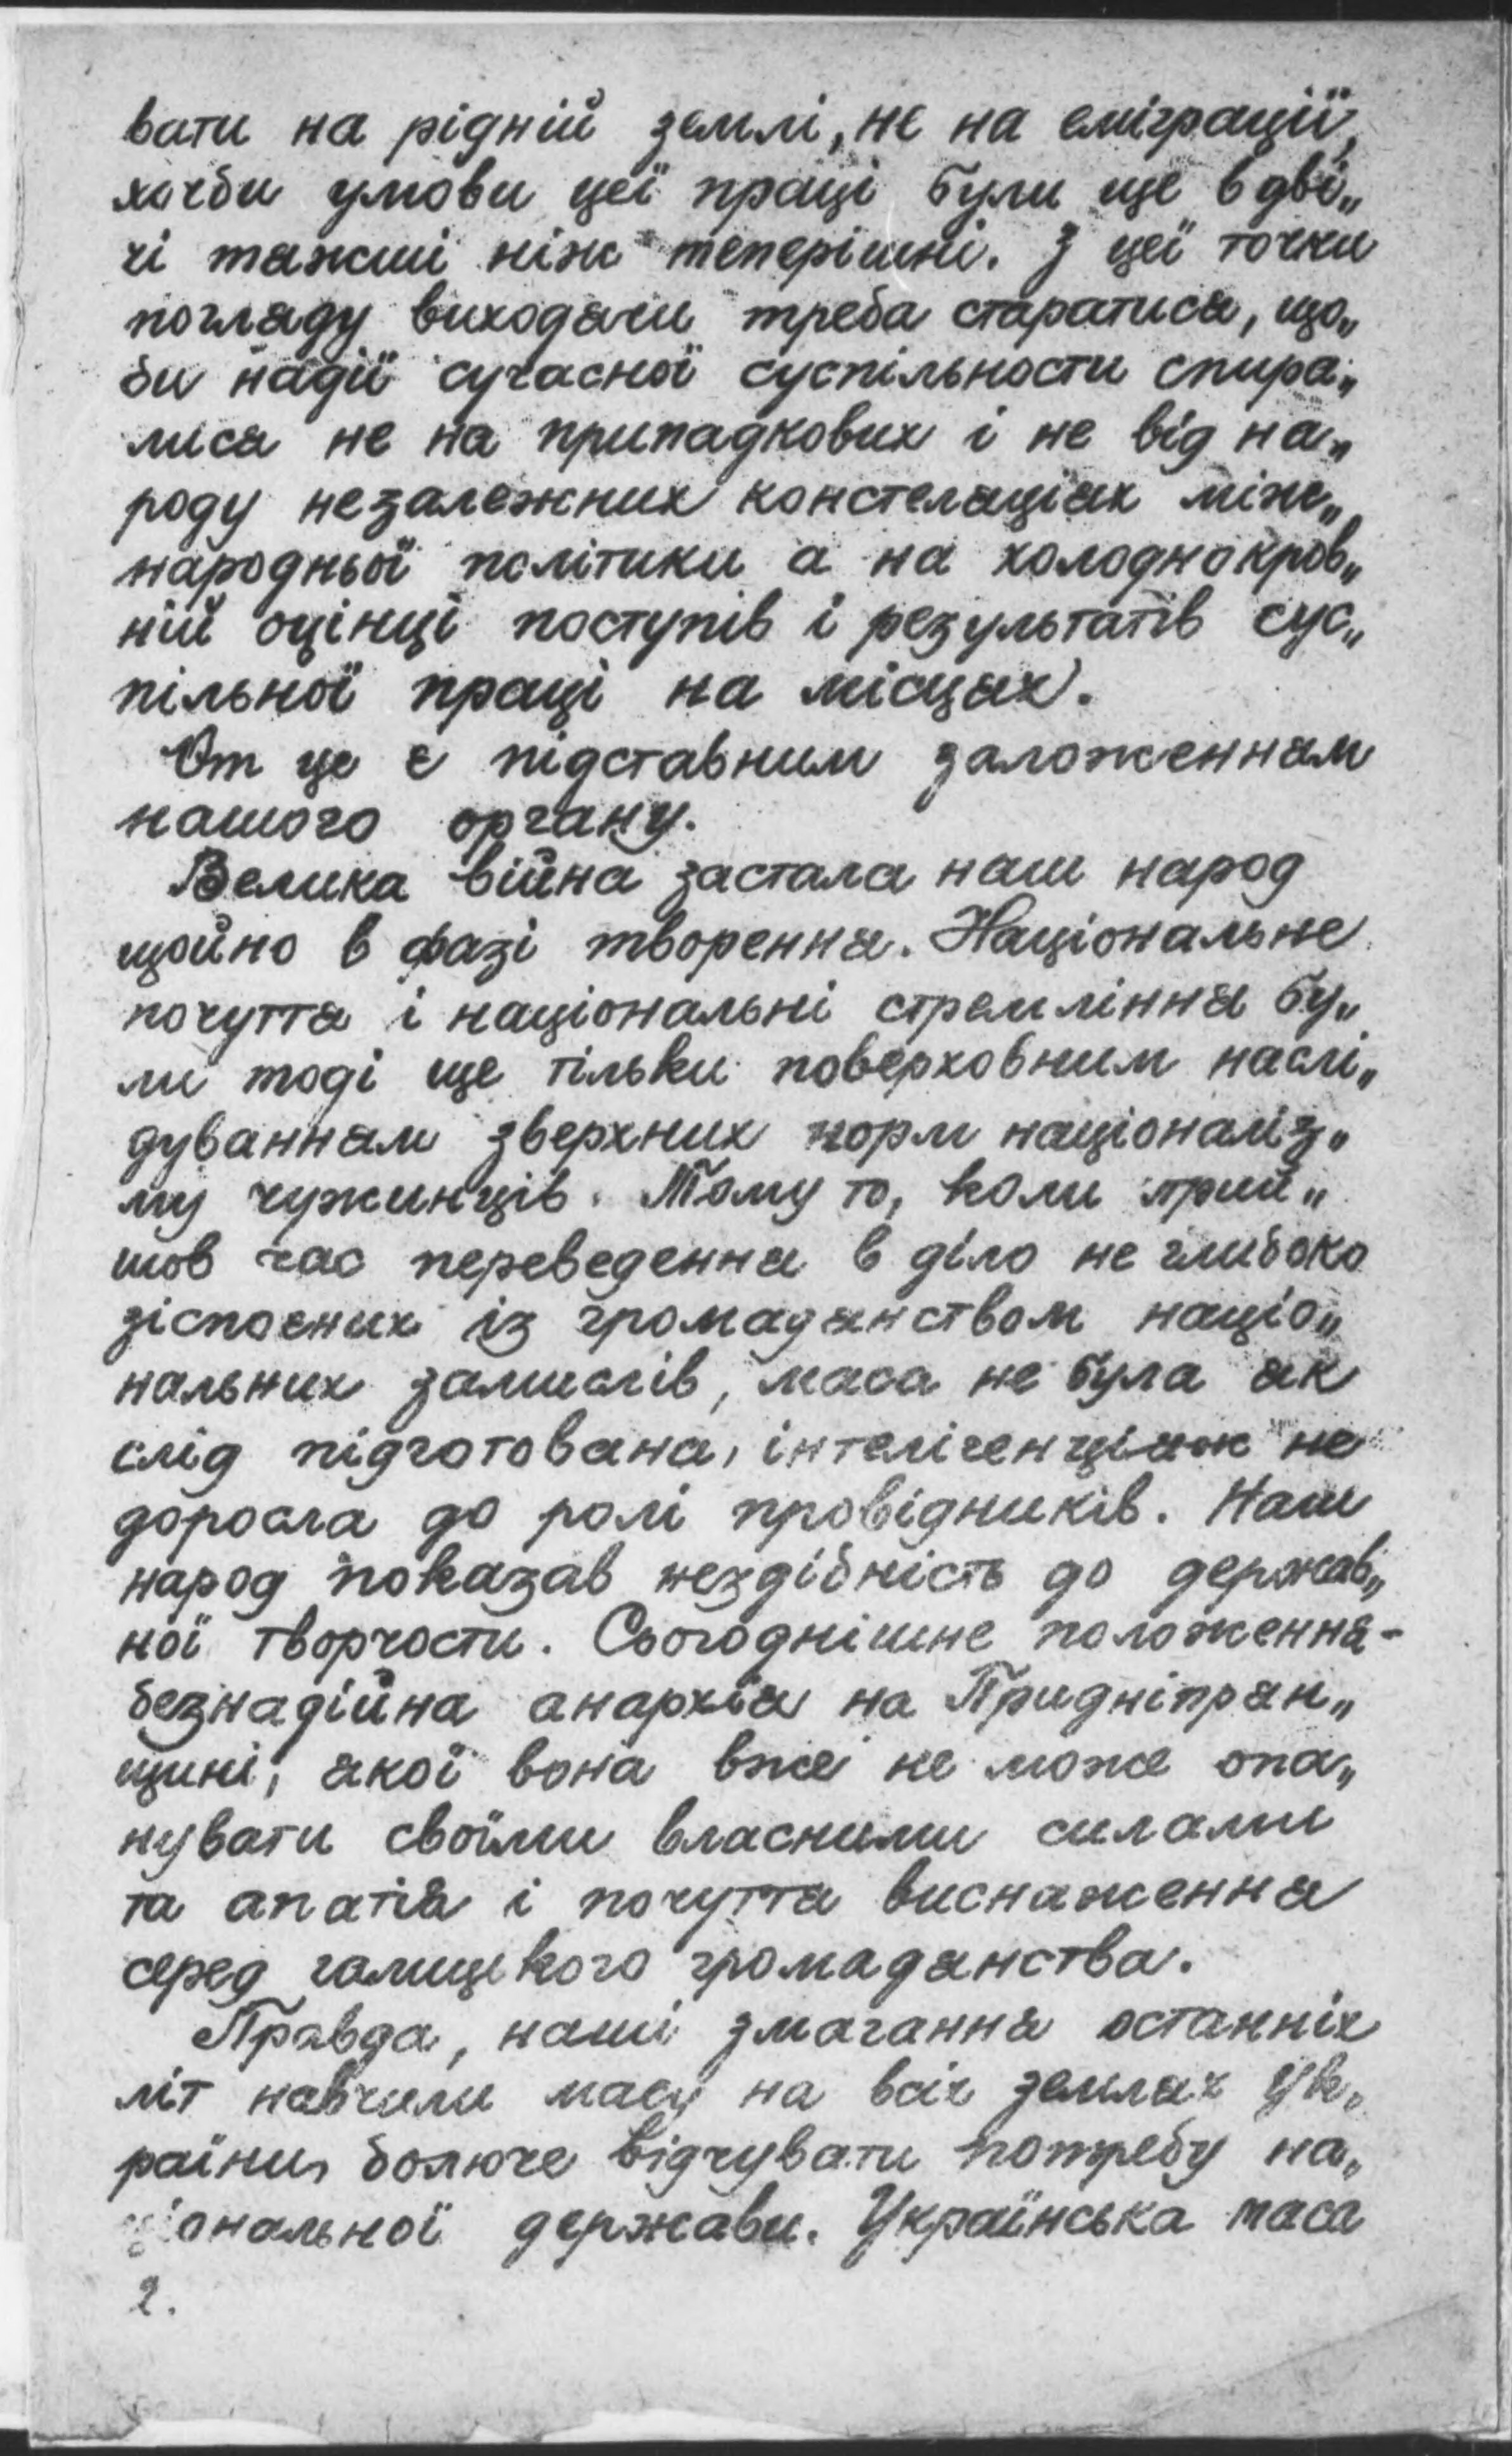 вати на рідній землі, не на еміграції,
хочби умови цеї праці були ще вдві„
чі тяжші ніж теперішні. З цеї точки
погляду виходячи треба старатися, що„
би надії сучасної суспільности спира„
лися не на припадкових і не від на„
роду незалежних констеляціях між„
народньої політики а на холоднокров„
ній оцінці поступів і результатів сус„
пільної праці на місцях.
От це є підставним заложенням
нашого органу.
Велика війна застала наш народ
щойно в фазі творення. Національне
почуття і національні стремління бу„
ли тоді ще тільки поверховним наслі„
дуванням зверхних норм націоналіз„
му чужинців. Тому то, коли прий„
шов час переведення в діло не глибоко
зіспоєних із громадянством націо„
нальних замислів, маса не була як
слід підготована, інтелігенціяж не
доросла до ролі провідників. Наш
народ показав нездібність до держав„
ної творчости. Сьогоднішне положення-
безнадійна анархія на Придніпрян„
щині, якої вона вже не може опа„
нувати своїми власними силами
та апатія і почуття виснаження
серед галицького громадянства.
Правда, наші змагання останніх
літ навчили масу на всіх землях Ук„
раїни, болюче відчувати потребу на„
ціональної держави. Українська маса
2.